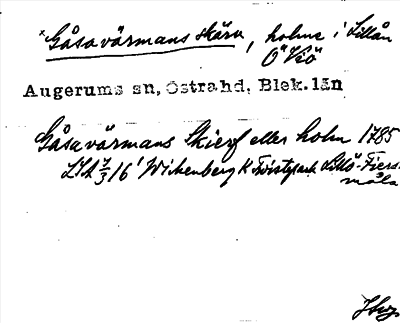 *Gåsavärmans skäru, holme i Lillån
Ö Kiö
Augerums sn, Östrahd, Blek. län
Gåsavärmans Skierf eller holm 1785
LSA 7/3 16' Wikenberg K Lillö-Fiers-
måla